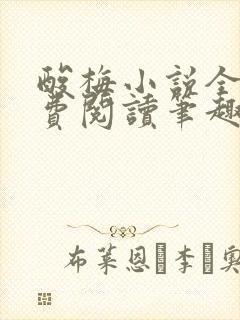 酸梅小说全
費閱讀筆趣
布莱恩 李 奥